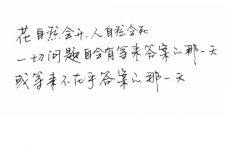 花自然会开，人自然会和
一切问题自会有等来答案的那一天
或等来不在乎答案的那一天